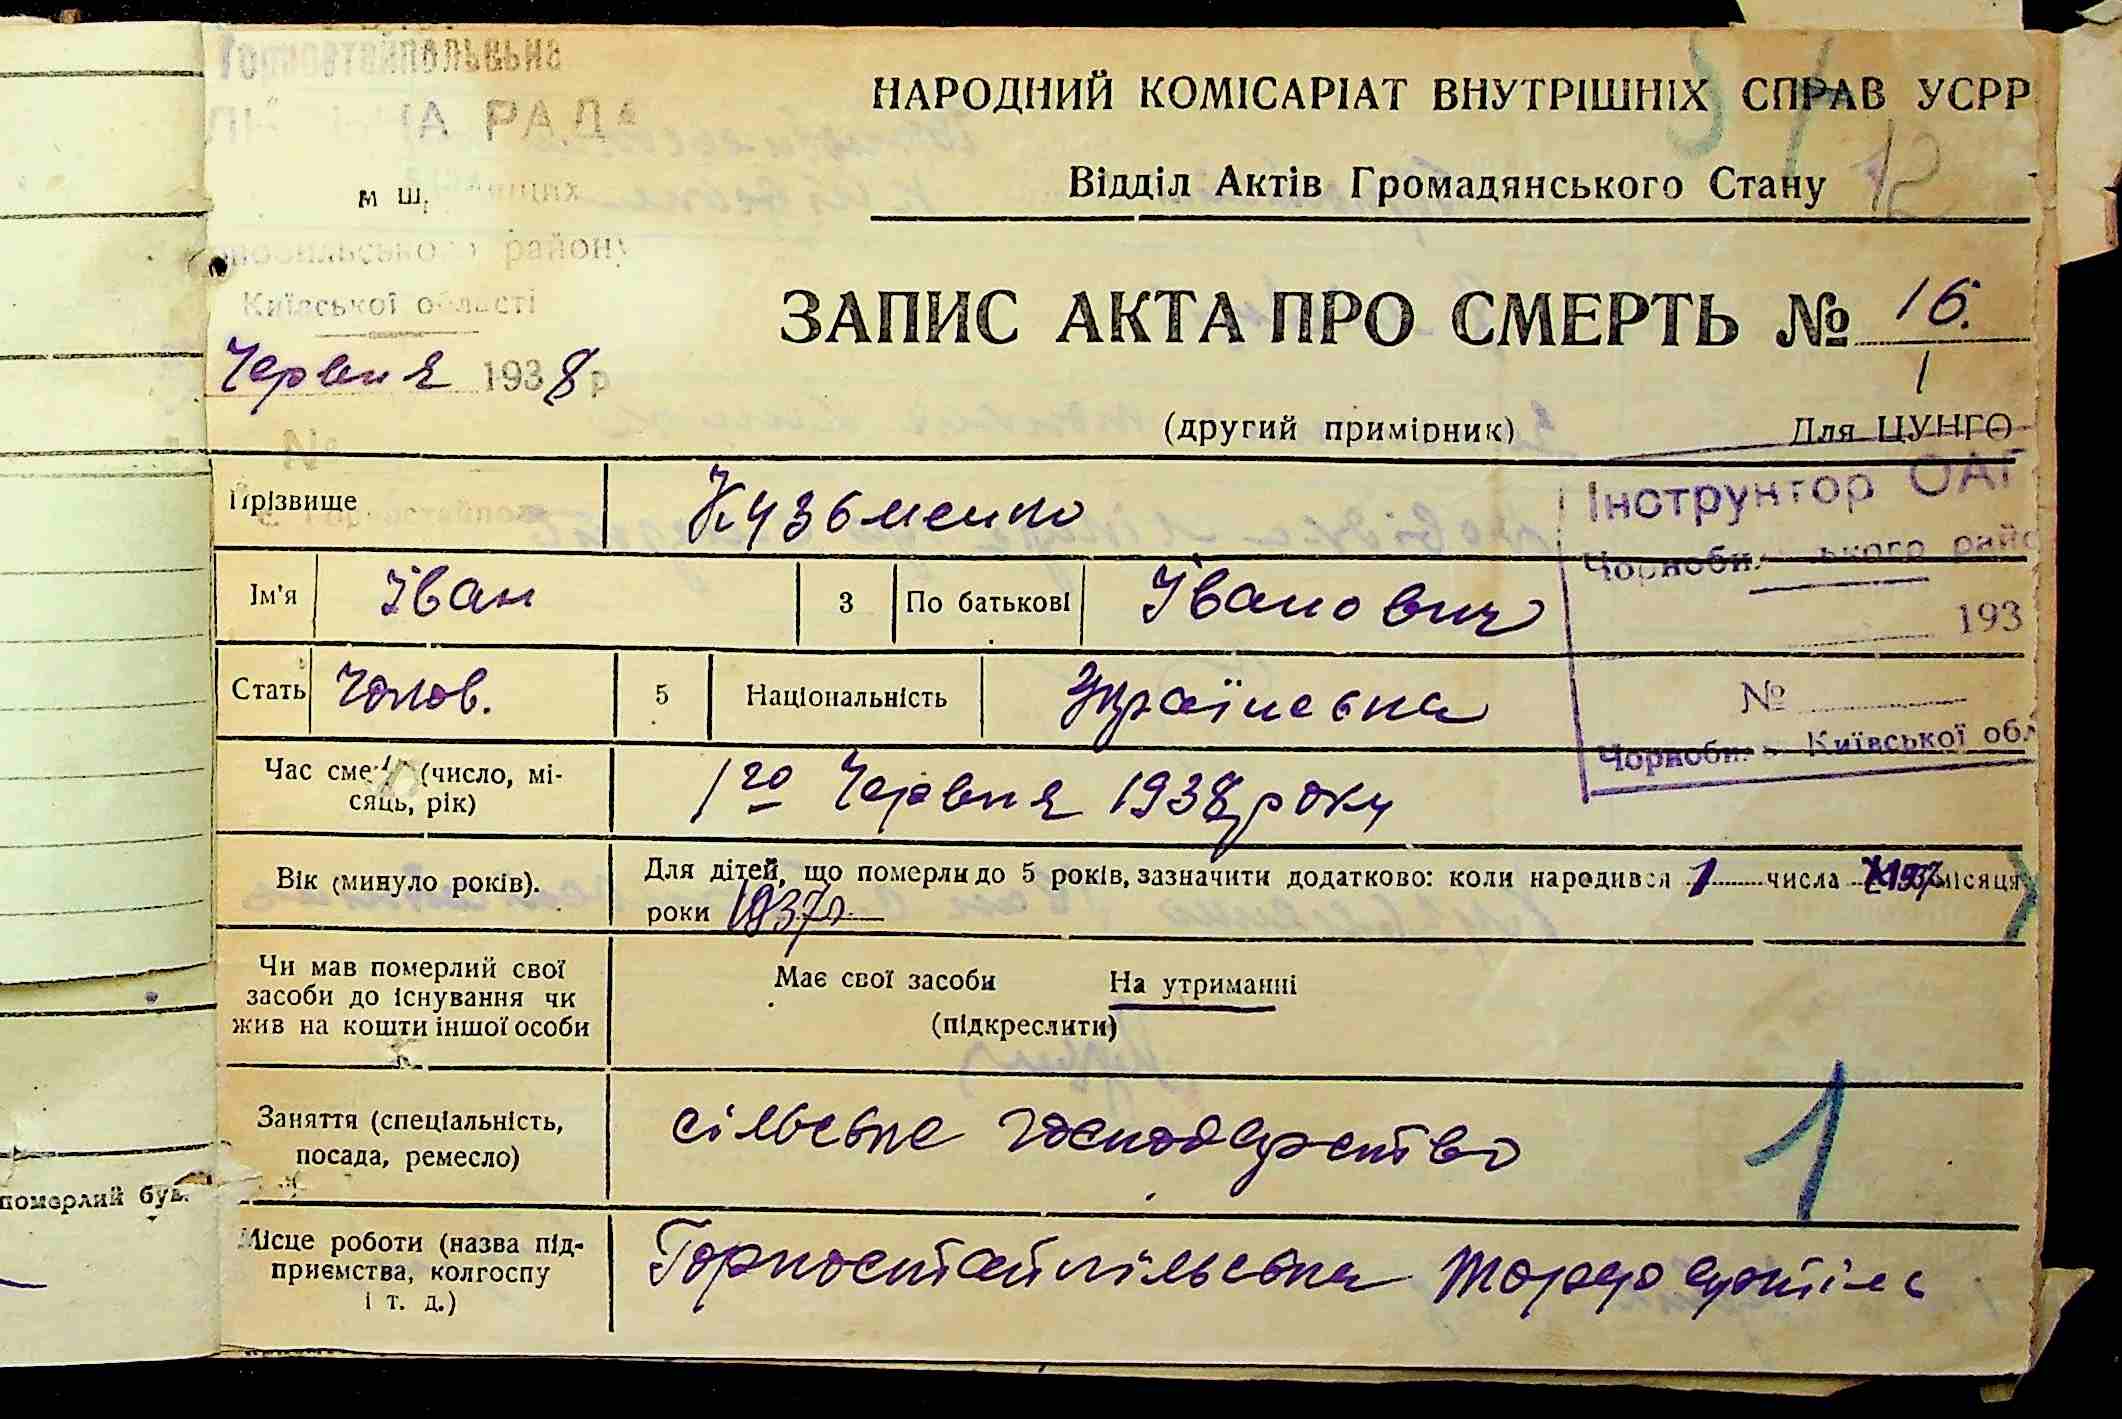 Горностайпольвьна
НА РАДА
м щ.
Чорнобильського району
Київської області
Червня 1938 р
№
НАРОДНИЙ КОМІСАРІАТ ВНУТРІШНІХ СПРАВ УСРР
Відділ Актів Громадянського Стану
12
ЗАПИС АКТА ПРО СМЕРТЬ № 16.
1
(другий примірник) Для ЦУНГО
Прізвище Кузьменко
Інструктор ОАГ
Чорнобильського райо
193
№
Чорнобиль Київської обл
Ім'я Іван 3 По батькові Іванович
Стать Чолов. 5 Національність Українська
Час смерти (число, мі-
сяць, рік)
1го Червня 1938 року
Вік (минуло років).
Для дітей, що померли до 5 років, зазначити додатково: коли народився 1 числа місяця
роки 1937р.
Чи мав померлий свої
засоби до існування чи
жив на кошти іншої особи
Має свої засоби На утриманні
(підкреслити)
Заняття (спеціальність,
посада, ремесло)
сільське господарство
1
Місце роботи (назва під-
приємства, колгоспу
і т. д.)
Горностайпільська Торгартіль
померлий був.